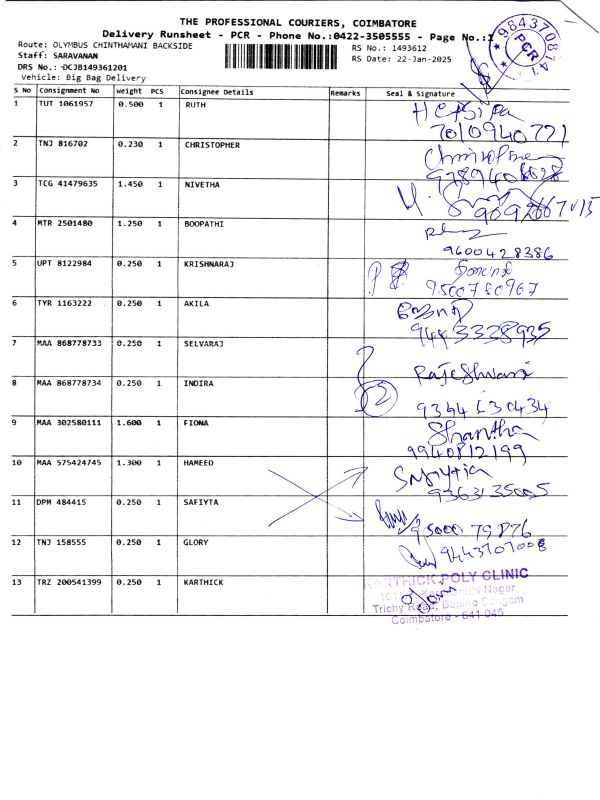 THE PROFESSIONAL COURIERS, COIMBATORE
Delivery Runsheet - PCR - Phone No.:0422-3505555 - Page No.:1
Route: OLYMBUS CHINTHAMANI BACKSIDE
Staff: SARAVANAN
DRS No.: DCJB149361201
Vehicle: Big Bag Delivery
RS No.: 1493612
RS Date: 22-Jan-2025
PCR
S No Consignment No Weight PCS Consignee Details Remarks Seal & Signature
1 TUT 1061957 0.500 1 RUTH
7010940771
2 TNJ 816702 0.230 1 CHRISTOPHER
3 TCG 41479635 1.450 1 NIVETHA
4 MTR 2501480 1.250 1 BOOPATHI
9600428386
5 UPT 8122984 0.250 1 KRISHNARAJ
9500780967
6 TYR 1163222 0.250 1 AKILA
7 MAA 868778733 0.250 1 SELVARAJ
Rajeshwari
8 MAA 868778734 0.250 1 INDIRA
2
9 MAA 302580111 1.600 1 FIONA
Shantha
9940812199
10 MAA 575424745 1.300 1 HAMEED
11 DPM 484415 0.250 1 SAFIYTA
12 TNJ 158555 0.250 1 GLORY
13 TRZ 200541399 0.250 1 KARTHICK
KARTHICK POLY CLINIC
Nagar
Trichy Road,
Coimbatore - 641 045